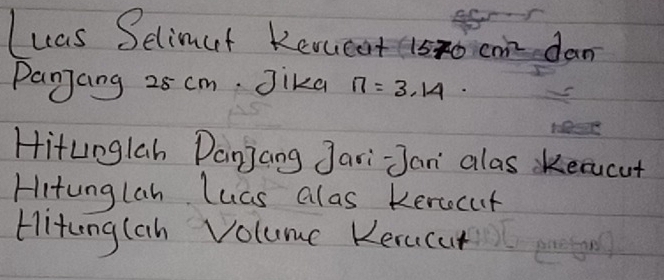 Luas Selimut Kerucut 1570 cm² dan
Panjang 25 cm. Jika π = 3,14.
Hitunglah Panjang Jari-Jari alas Kerucut
Hitunglah luas alas Kerucut
Hitunglah Volume Kerucut